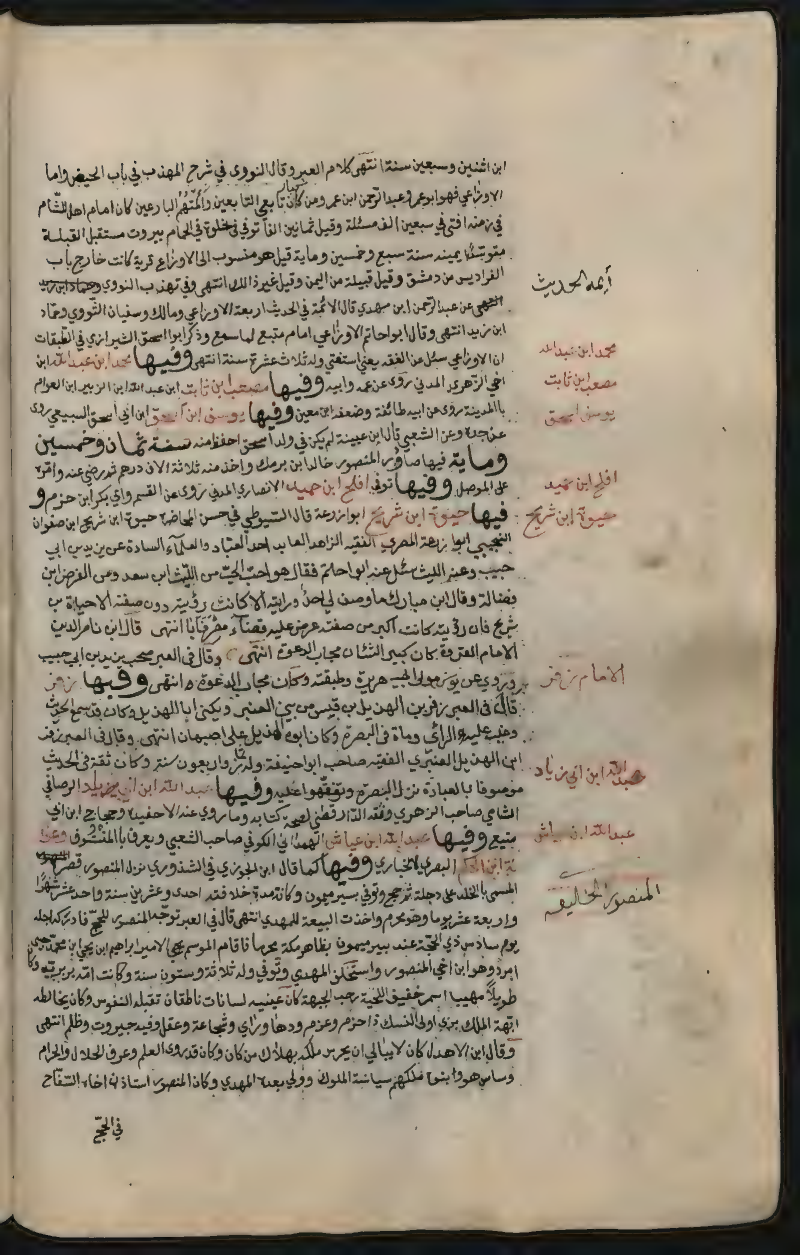 ابن اثنين وسبعين سنة انتهى كلام العبر وقال النووى في شرح المهذب في باب الحيض واما
الاوزاعي فهو ابو عمرو عبد الرحمن ابن عمرو من كبار تابعي التابعين وأئمتهم البارعين كان امام اهل الشام
في زمنه افتى في سبعين الف مسئلة وقيل ثمانين الفا توفي في خلوة في الحمام ببيروت مستقبل القبلة
متوسدا يمينه سنة سبع وخمسين وماية قيل هو منسوب الى الاوزاع قرية كانت خارج باب
الفراديس من دمشق وقيل قبيلة من اليمن وقيل غير ذالك انتهى وفي تهذب النووى
عن عبد الرحمن ابن مهدي قال الائمة في الحديث اربعة الاوزاعي ومالك وسفيان الثووى وحماد
ابن زيد انتهى وقال ابو احاتم الاوزاعي امام متبع لما سمع وذكر ابوا اسحق الشيرازي في الطبقات
ان الاوزاعي سئل من الفقه يعني استفتي وله ثلاث عشرة سنة انتهى وفيها محمد ابن عبد الله ابن
اخي الزهرى المدني روى عن عمه وابيه وفيها مصعب ابن ثابت ابن عبد الله ابن الزبير ابن العوام
باالمدينة روى عن ابيه طائفة وضعفه ابن معين وفيها يوسف ابن اسحق ابن ابي اسحق السبيعي روى
عن جده وعن الشعبي قال ابن عيينة لم يكن في ولد اسحق احفظ منه سنة ثمان وخمسين
وماية فيها صادر المنصور خالد ابن برمك واخذ منه ثلاثة الاف درهم ثم رضي عنه وامره
على الموصل وفيها توفي افلح ابن حميد الانصاري المدني روى عن القسم وابي بكر ابن حزم و
فيها حيوة ابن شريح ابوا زرعة قال السيوطي في حسن المحاضرة حيوة ابن شريح ابن صفوان
التجيبي ابوا زرعة المصري الفقيه الزاهد العابد احد العباد والعلمآء السادة عن يزيد بن ابي
حبيب وعنه الليث سئل عنه ابوا حاتم فقال هو احب الي من الليث ابن سعد ومن المفضل ابن
فضالة وقال ابن مبارك ما وصف لي احد ورايته الا كانت رؤيته دون صفته الا حياة بن
شريح فان رؤيته كانت اكبر من صفته عرض عليه قضآء مصر فابا انتهى قال ابن ناصر الدين
الامام القدوة كان كبير الشان مجاب الدعوة انتهى وقال في العبر صحب يزيد بن ابي حبيب
وروي عن يونس مولى ابي هريرة وطبقته وكان مجاب الدعوة انتهى وفيها زفر
قال في العبر زفر بن الهذيل بن قيس من بني العنبر ويكنى ابا الهذيل وكان قد سمع الحديث
وغلب عليه الرائ ومات في البصرة وكان ابوه الهذيل على اصبهان انتهى وقال في العبر زفر
ابن الهذيل العنبري الفقيه صاحب ابو احنيفة وله ثمان واربعون سنة وكان ثقة في الحديث
موصوفا باالعبادة نزل البصرة وتفقهوا عليه وفيها عبد الله ابن ابي زياد الرصافي
الشامي صاحب الزهري وثقه الدارقطني لصحة كتابه وما روي عنه الا حفيده وحجاج ابن ابي
منيع وفيها عبد الله ابن عياش الهمداني الكوفي صاحب الشعبي ويعرف باالمنتوف وعوا
نة ابن الحكم البصري الاخباري وفيها كما قال ابن الجوزي في الشذور نزل المنصور قصره
المسمى باالخلد على دجلة ثم حج وتوفي ببير ميمون وكانة مدة خلافته احدى وعشرين سنة واحد عشر شهرا
واربعة عشر يوما وهو محرم واخذت البيعة للمهدي انتهى قال في العبر توجه المنصور للحج فادركه اجله
يوم سادس ذي الحجة عند بير ميمون بظاهر مكة محرما فاقام الموسم الامير ابراهيم ابن يحيى ابن محمد صبي
امرد وهو ابن اخي المنصور واستخلف المهدي وتوفي وله ثلاثة وستون سنة وكانت امه بربرية وكا
طويلا مهيبا اسمر خفيف اللحية رحب الجبهة كان عينيه لسانان ناطقان تقبله النفوس وكان يخالطه
ابهة الملك بزي اولى النسك ذا حزم وعزم ودها وراي وشجاعة وعقل وفيه جبروت وظلم انتهى
وقال ابن الاهدل كان لا يبالي ان يحرس ملكه بهلاك من كان وكان قد روى العلم وعرف الحلال والحرام
وساس هو وابنوه ملكهم سياسة الملوك وولي بعده المهدي وكان المنصور استاذن اخاه السفاح
في الحج
أيمه الحديث
محمد ابن عبدالله
مصعب ابن ثابت
يوسف اسحق
افلح ابن حميد
حيوة ابن شريح
الامام زفر
عبدالله ابن ابي زياد
عبدالله ابن عياش
المنصور الخليفه